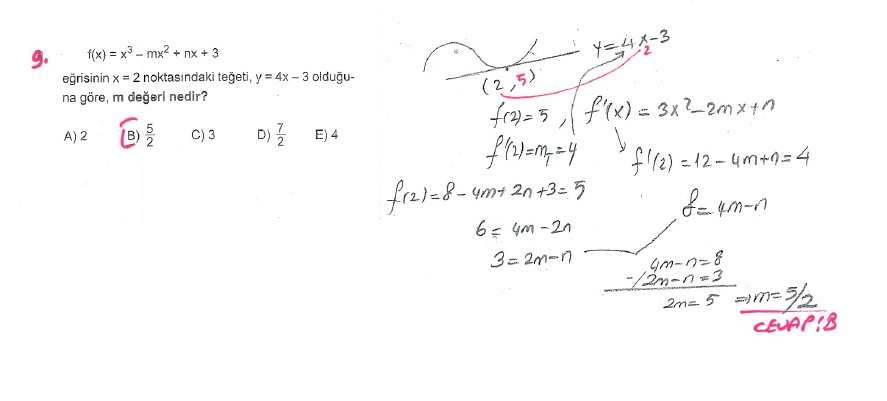 9. f(x) = x³ – mx² + nx + 3
eğrisinin x = 2 noktasındaki teğeti, y = 4x – 3 olduğu-
na göre, m değeri nedir?
A) 2 B) 5/2 C) 3 D) 7/2 E) 4
y=4x-3
2
(2,5)
f(2)=5, f'(x) = 3x²-2mx+n
f'(2)=m_T=4
f'(2)=12-4m+n=4
f(2)=8-4m+2n+3=5
8=4m-n
6=4m-2n
3=2m-n
4m-n=8
-/2m-n=3
2m=5 ⇒m=5/2
CEVAP:B